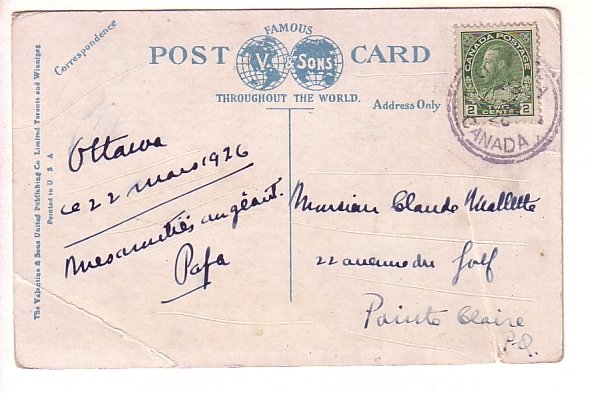 FAMOUS
POST V. & SONS CARD
THROUGHOUT THE WORLD.
Correspondence
Address Only
The Valentine & Sons United Publishing Co. Limited Toronto and Winnipeg
Printed in U S A
CANADA POSTAGE
2 TWO CENTS 2
CANADA
Ottawa
ce 22 mars 1926
Mes amitiés au géant.
Papa
Monsieur Claude Mallette
22 avenue du Golf
Pointe Claire
P.Q.